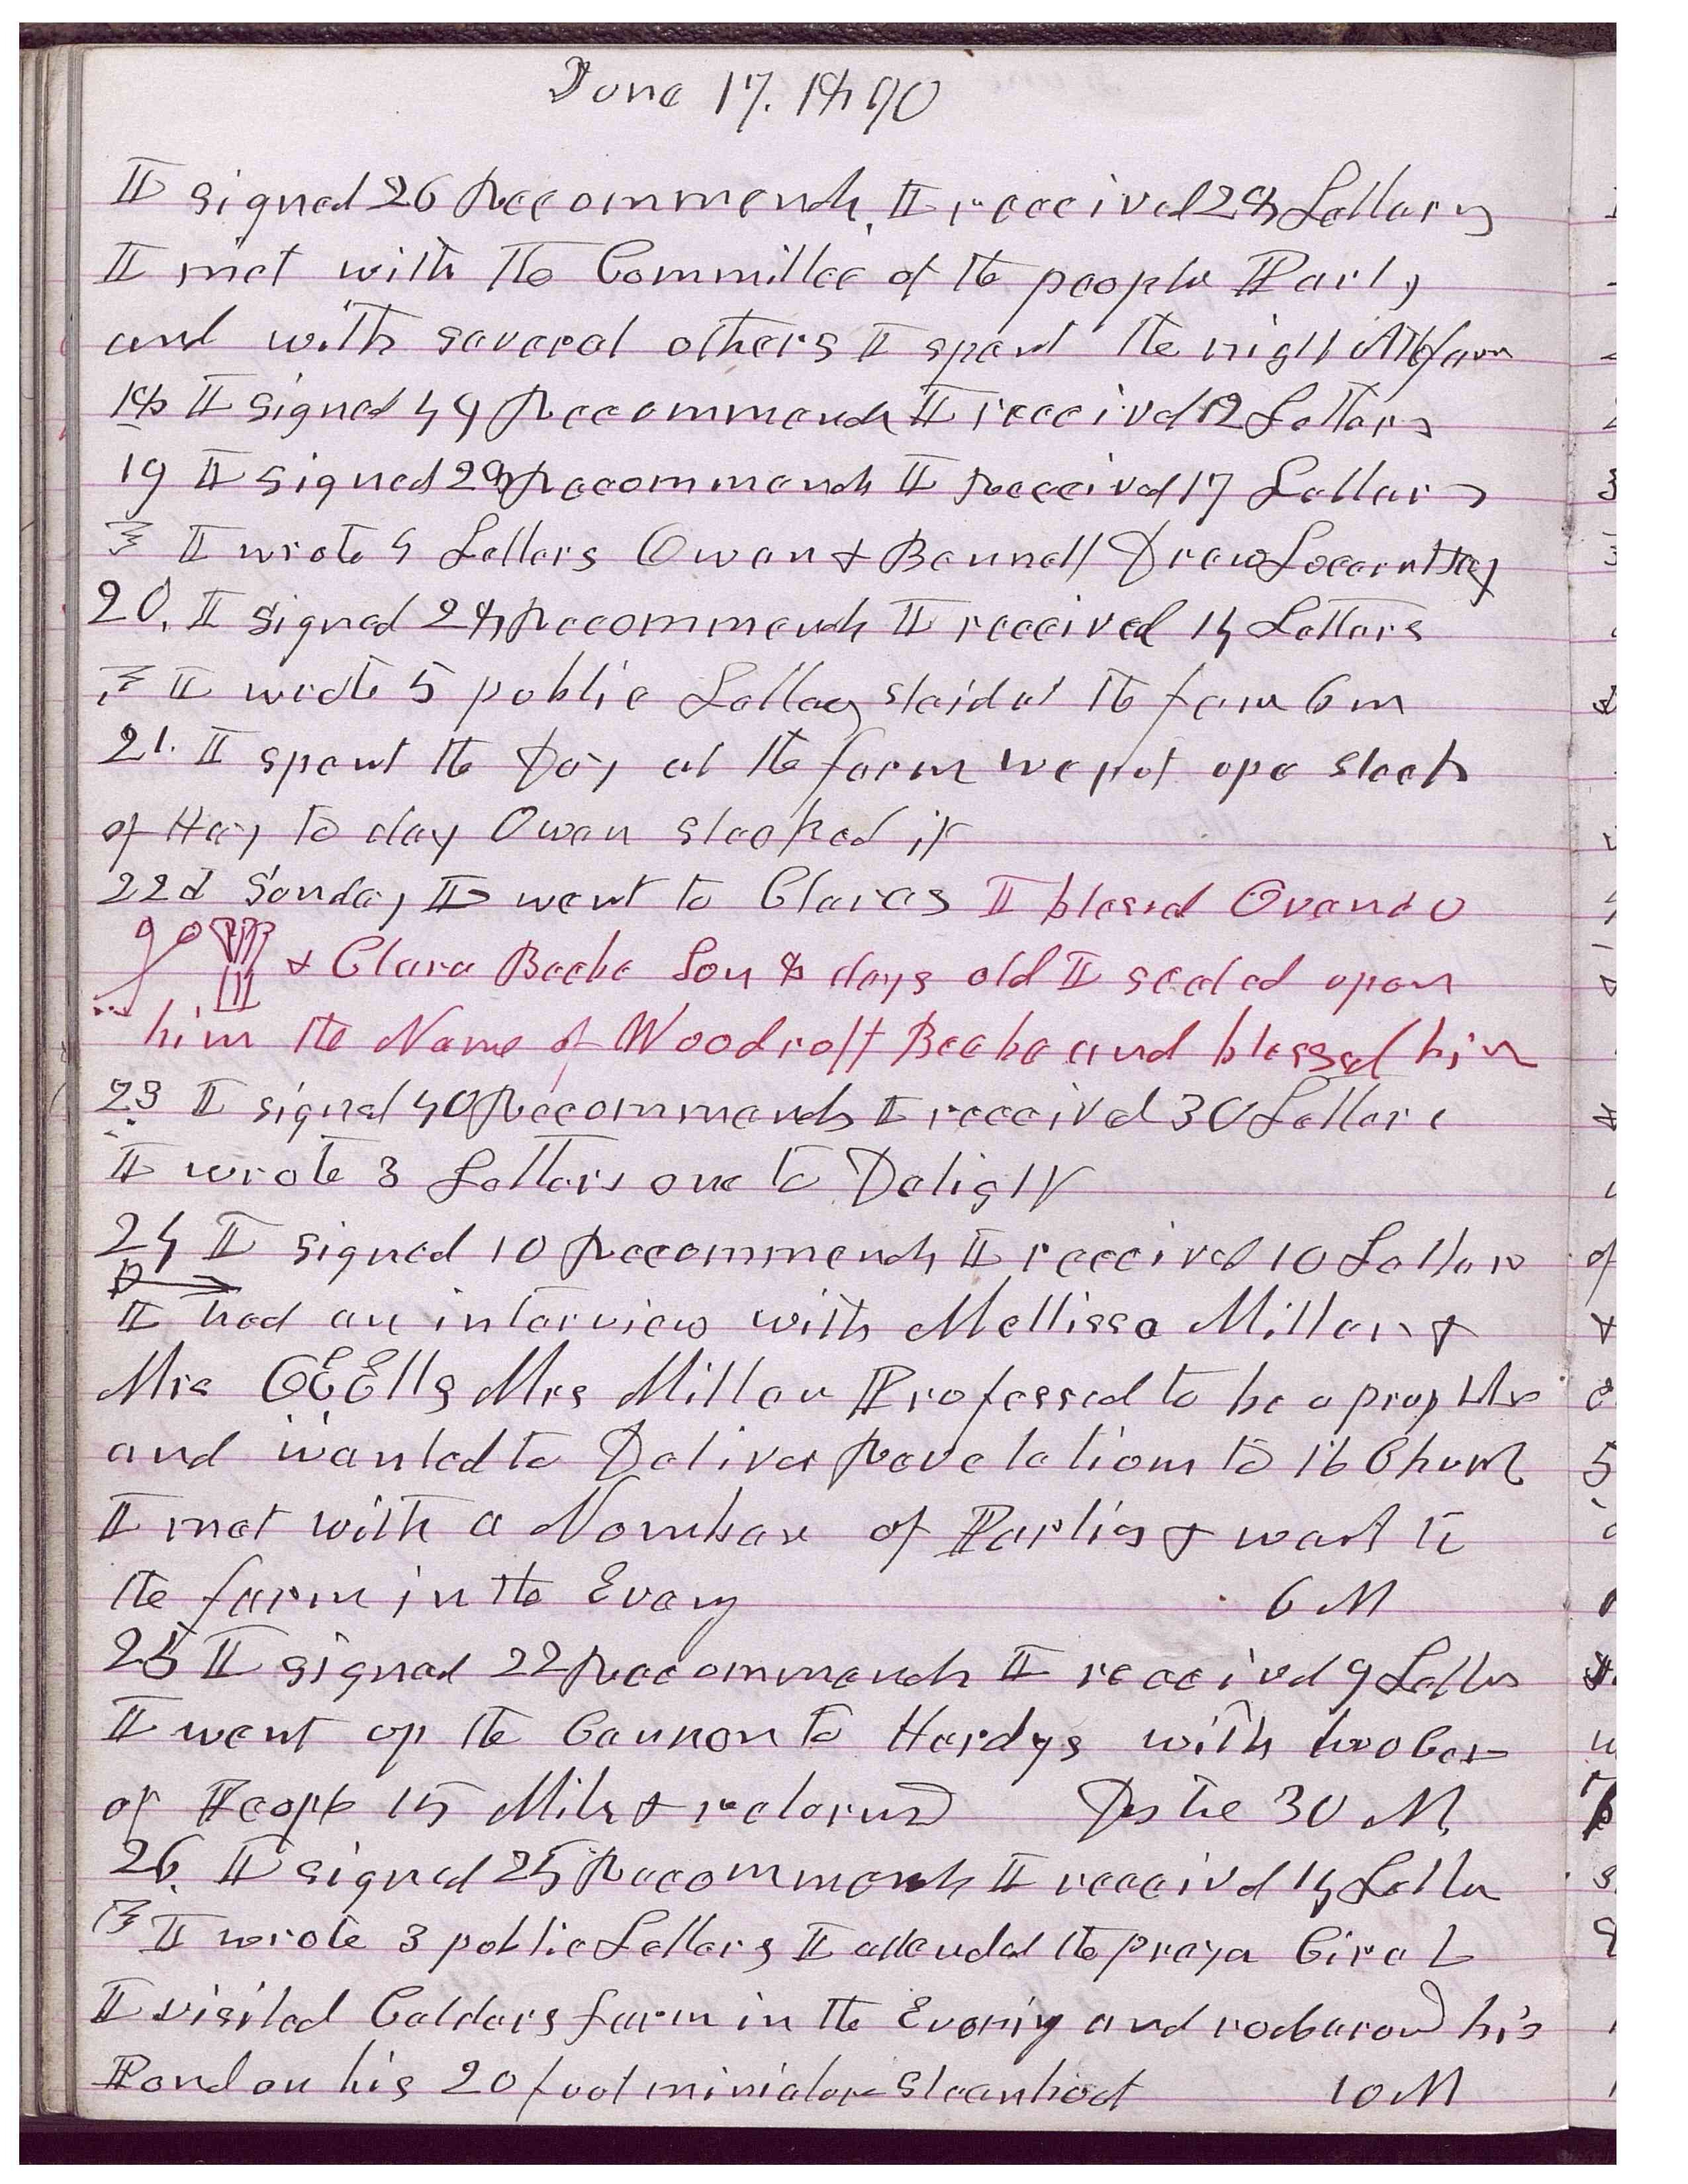 June 17. 1890
I signed 26 Recommends. I received 28 Letters
I met with the Committee of the peoples Party
and with several others I spent the night At the farm
18 I signed 44 Recommends I received 12 Letters
19 I signed 28 Recommends I Received 17 Letters
I wrote 4 Letters Owen & Bennett Drew Locern Hay
20. I signed 28 Recommends I received 14 Letters
I wrote 5 public Letters staid at the farm 6 m
21. I spent the Day at the farm we put up a stack
of Hay to day Owen stacked it
22d Sunday I went to Claras I blessed Ovando
& Clara Beebe Son 8 days old I sealed upon
him the Name of Woodruff Beebe and blessed him
23 I signed 40 Recommends I received 30 Letters
I wrote 3 Letters one to Delight
24 I signed 10 Recommends I received 10 Letters
I had an interview with Mellissa Miller &
Mrs Mrs Miller Professed to be a prophetess
and wanted to Deliver Revelations to the Church
I met with a Number of Parties & went to
the farm in the Eveng 6 M
25 I signed 22 Recommends I received 9 Letters
I went up the Cannon to Hardys with two Cars
of People 15 Miles & returned Distce 30 M,
26. I signed 25 Recommends I received 14 Letter
I wrote 3 public Letters I attended the prayer Circl
I visited Calders farm in the Evening and rode around his
Pond on his 20 foot miniature Steamboat 10 M